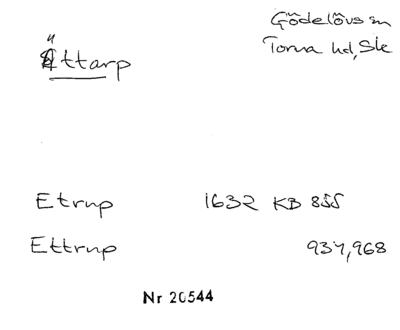 Gödelövs sn
Torna hd, Sk
Ättarp
Etrup 1632 KB 855
Ettrup 937,968
Nr 20544